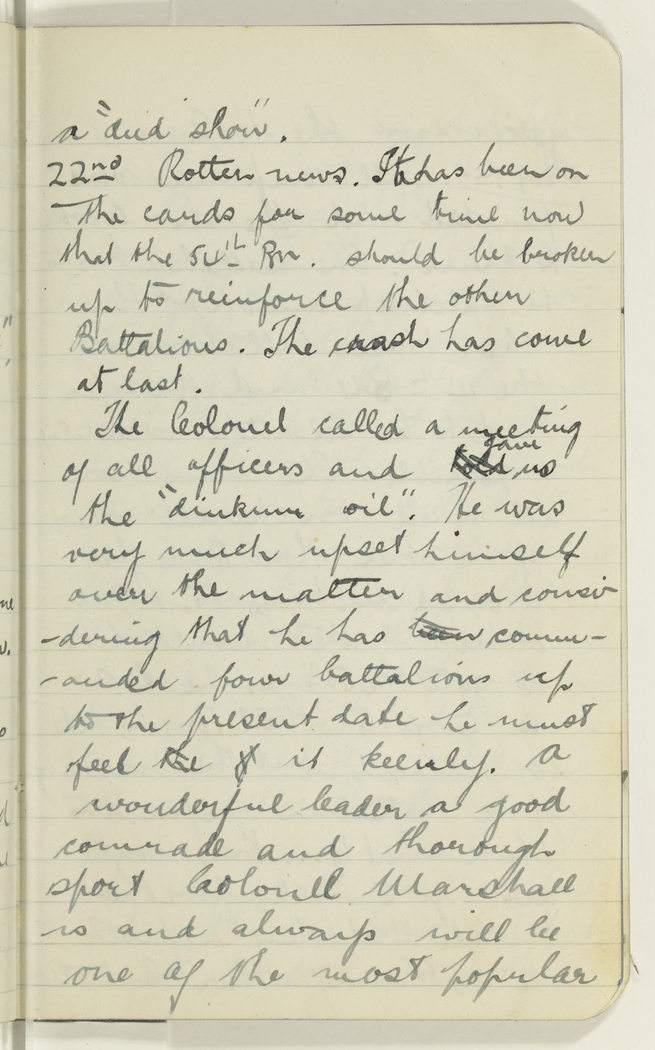 a "dud show".
22nd Rotten news. It has been on
the cards for some time now
that the 54th Bn. should be broken
up to reinforce the other
Battalions. The crash has come
at last.
The Colonel called a meeting
of all officers and told gave us
the "dinkum oil". He was
very much upset himself
over the matter and consi-
-dering that he has been comm-
-anded four battalions up
to the present date he must
feel the it keenly. A
wonderful leader a good
comrade and thorough
sport Colonel Marshall
is and always will be
one of the most popular